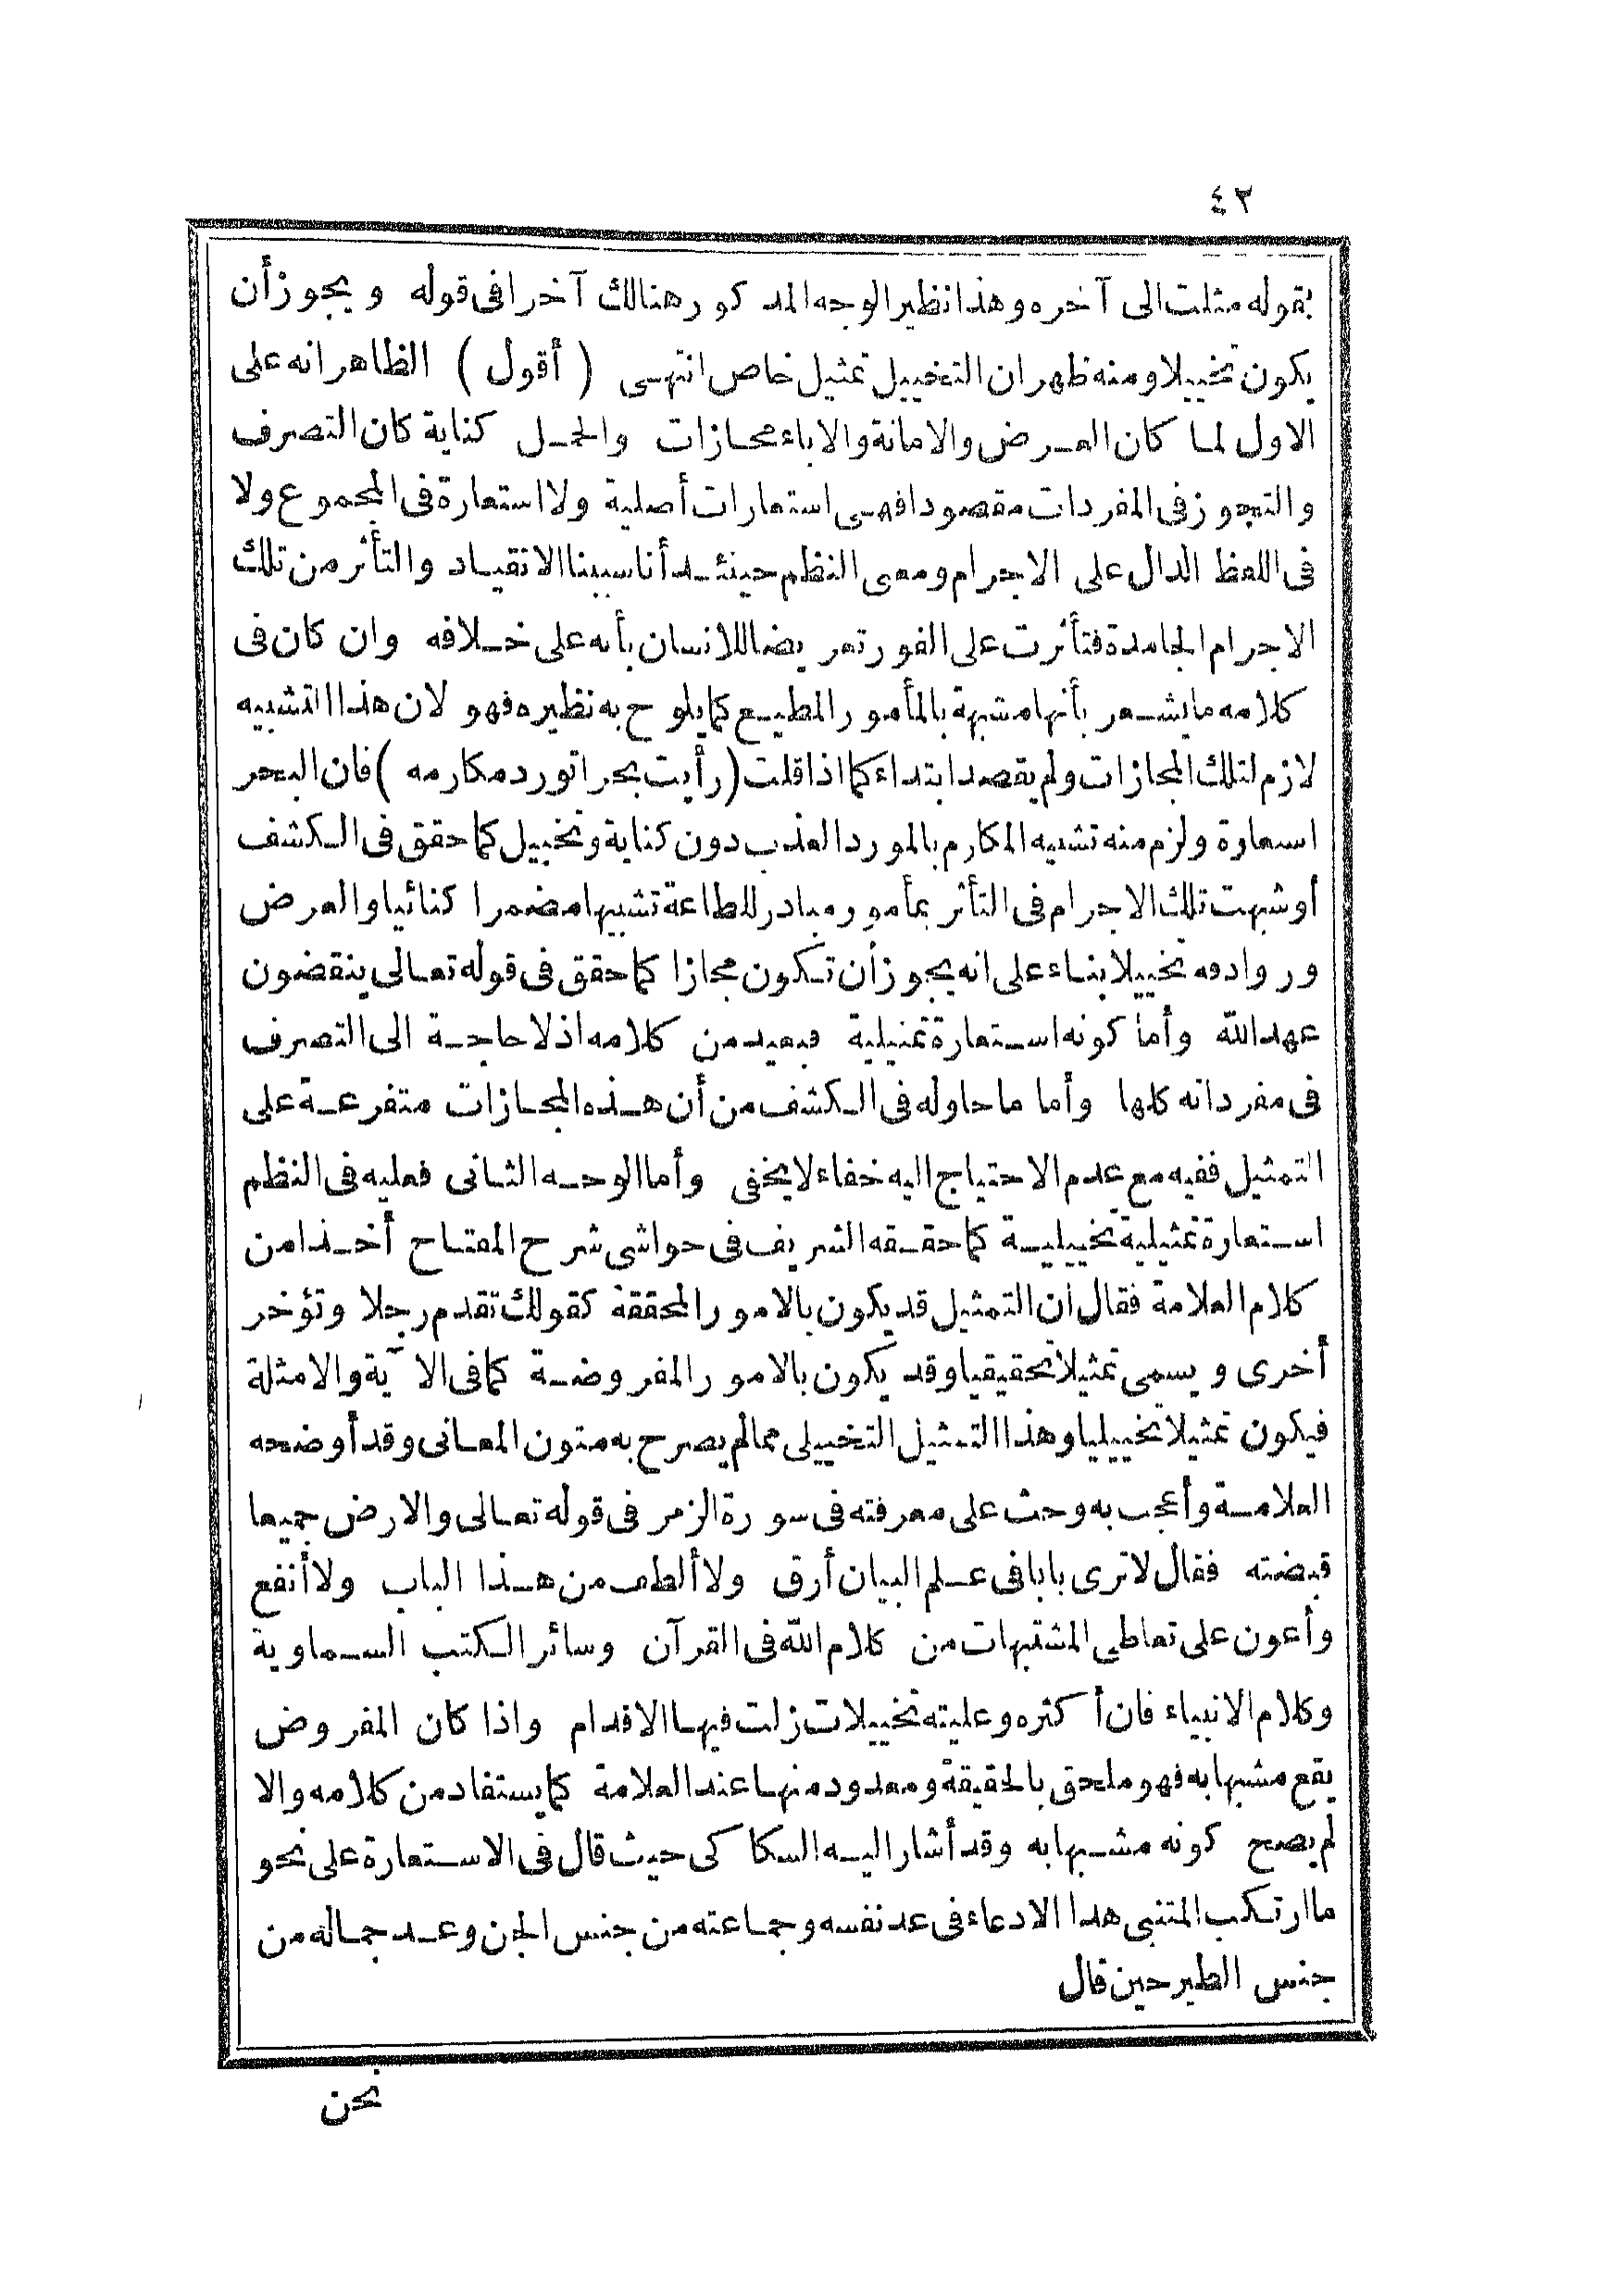 ٤٢
بقوله مثلت الى آخره وهذا نظير الوجه المذكور هنالك آخرا فى قوله ويجوز أن
يكون تخييلا ومنه ظهر ان التخييل تمثيل خاص انتهى ( أقول ) الظاهر انه على
الاول لما كان العرض والامانة والاباء مجازات والحمل كناية كان التصرف
والتجوز فى المفردات مقصودا فهى استعارات أصلية ولا استعارة فى المجموع ولا
فى اللفظ الدال على الاجرام ومعنى النظم حينئذ أنا سببنا الانقياد والتأثر من تلك
الاجرام الجامدة فتأثرت على الفور تعريضا للانسان بأنه على خلافه وان كان فى
كلامه ما يشعر بأنها مشبهة بالمأمور المطيع كما يلوح به نظيره فهو لان هذا التشبيه
لازم لتلك المجازات ولم يقصد ابتداء كما اذا قلت (رأيت بحرا تورد مكارمه) فان البحر
استعارة ولزم منه تشبيه المكارم بالمورد العذب دون كناية وتخييل كما حقق فى الكشف
أو شبهت تلك الاجرام فى التأثر بمأمور مبادر للطاعة تشبيها مضمرا كنائيا والعرض
وروادفه تخييلا بناء على انه يجوز أن تكون مجازا كما حقق فى قوله تعالى ينقضون
عهد الله وأما كونه استعارة تمثيلية فبعيد من كلامه اذ لا حاجة الى التصرف
فى مفرداته كلها وأما ما حاوله فى الكشف من أن هذه المجازات متفرعة على
التمثيل ففيه مع عدم الاحتياج اليه خفاء لا يخفى وأما الوجه الثانى فعليه فى النظم
استعارة تمثيلية تخييلية كما حققه الشريف فى حواشى شرح المفتاح أخذا من
كلام العلامة فقال ان التمثيل قد يكون بالامور المحققة كقولك تقدم رجلا وتؤخر
أخرى ويسمى تمثيلا تحقيقيا وقد يكون بالامور المفروضة كما فى الآية والامثلة
فيكون تمثيلا تخييليا وهذا التمثيل التخييلى مما لم يصرح به متون المعانى وقد أوضحه
العلامة وأعجب به وحث على معرفته فى سورة الزمر فى قوله تعالى والارض جميعا
قبضته فقال لا ترى بابا فى علم البيان أرق ولا ألطف من هذا الباب ولا أنفع
وأعون على تعاطى المشتبهات من كلام الله فى القرآن وسائر الكتب السماوية
وكلام الانبياء فان أكثره وعليته تخييلات زلت فيها الاقدام واذا كان المفروض
يقع مشبها به فهو ملحق بالحقيقة ومعدود منها عند العلامة كما يستفاد من كلامه والا
لم يصح كونه مشبها به وقد أشار اليه السكاكى حيث قال فى الاستعارة على نحو
ما ارتكب المتنبى هذا الادعاء فى عد نفسه وجماعته من جنس الجن وعد جماله من
جنس الطير حين قال
نحن